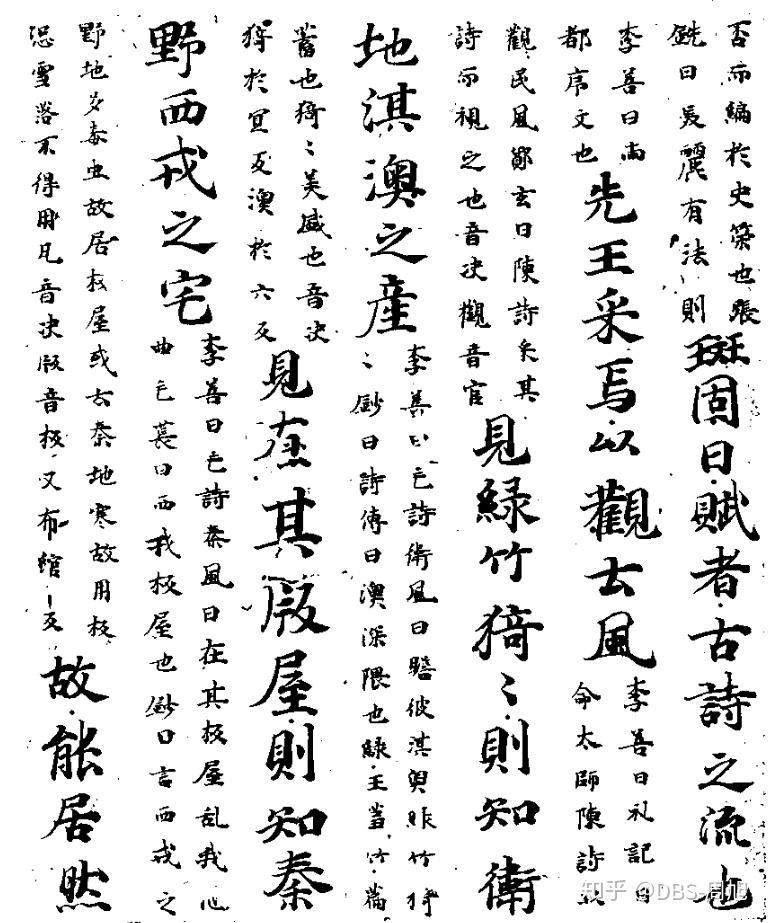 否而編於史策也張
銑曰美麗有法則
班固曰賦者古詩之流也
李善曰兩
都序文也
先王采焉以觀土風
李善曰礼記曰
命太師陳詩以
觀民風鄭玄曰陳詩矣其
詩而視之也音决觀音官
見緑竹猗〻則知衛
地淇澳之産
李善曰毛詩衛風曰瞻彼淇奥緑竹猗
〻鈔曰詩傳曰澳深隈也緑王芻竹萹
蓄也猗〻美盛也音决
猗於冝反澳於六反
見在其版屋則知秦
野西戎之宅
李善曰毛詩秦風曰在其板屋乱我心
曲毛萇曰西戎板屋也鈔曰言西戎之
野地多毒虫故居板屋或云秦地寒故用板
恐雪落不得用瓦音决版音板又布綰反
故能居然
知乎 @DBS-